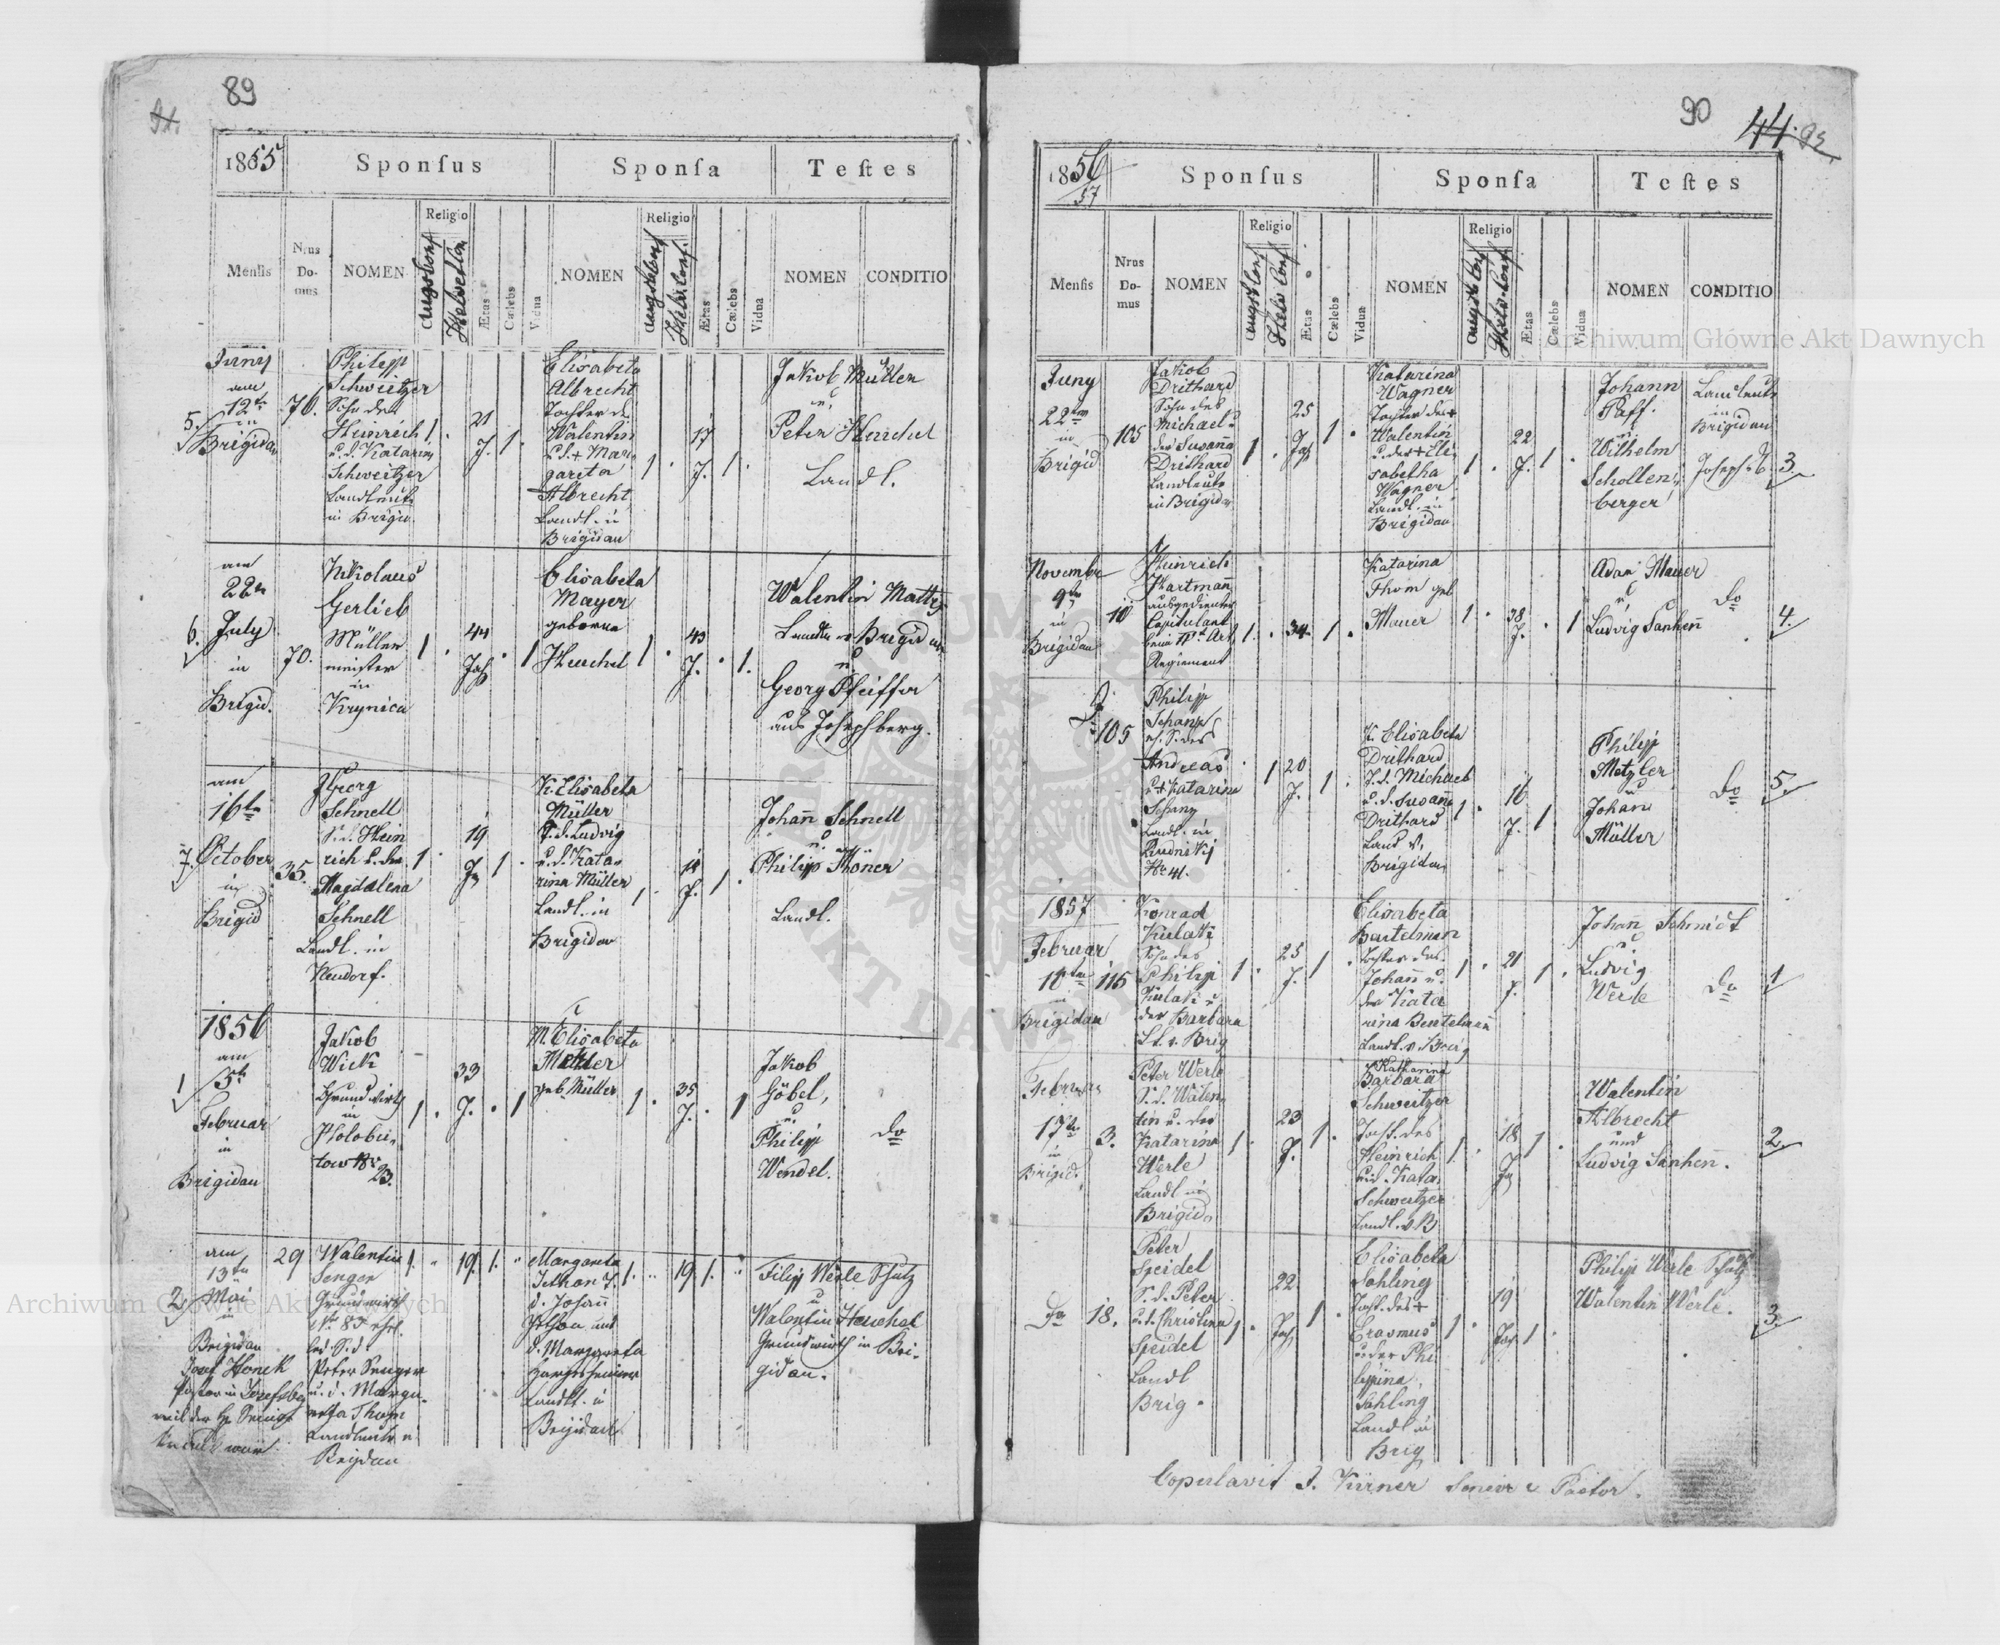 89
91.
1855
Sponſus
Sponſa
Teſtes
Menſis
Nrus Do- mus
NOMEN
Religio
Augsb Conf
Helvet Con
Ætas
Cælebs
Vidua
NOMEN
Religio
Augsb Conf
Helv. Conf.
Ætas
Cælebs
Vidua
NOMEN
CONDITIO
5.
Juny
am
12te
in
Brigidau
70.
Philipp
Schweitzer
Sohn des
Heinrich
u. d. Katarina
Schweitzer
Landleute
in Brigid.
1
21
J.
1
Elisabeta
Albrecht
Tochter des
Valentin
u. d. + Mar-
gareta
Albrecht
Landl. in
Brigidau
1
17
J.
1
Jakob Müller
u.
Peter Henchel
Landl.
6.
am
22n
July
in
Brigid.
70.
Nikolaus
Gerlieb
Müller
meister
in
Krynica
1
44
Jah
1
Elisabeta
Mayer
geborne
Henchel
1
43
J.
1.
Walentin Mattis
Landm in Brigidau
u.
Georg Pfeiffer
aus Josephberg.
7.
am
16te
October
in
Brigid
35.
Georg
Schnell
S. d. Hein
rich u. der
Magdalena
Schnell
Landl. in
Neudorf.
1
19
J.
1
K. Elisabeta
Müller
T. d. Ludvig
u. d. Kata-
rina Müller
Landl. in
Brigidau
1
J.
1
Johann Schnell
u.
Philipp Köner
Landl.
1
1856
am
5te
Februar
in
Brigidau
Jakob
Wick
Grundwirth
in
Holobu-
tow Nr
23.
1
33
J.
1
M. Elisabeta
geb. Müller
1
35
J.
1
Jakob
Göbel,
u.
Philipp
Wendel.
do
2
am
13ten
Mai
in
Brigidau
Josef Honek
Pastor in Josefsberg
weil der H. Senior
krank war
29
Valentin
Senger
Grundwirth
Nr 85 ehel.
led. S. d.
Peter Senger
u. d. Marga-
reta Thom
Landleute in
Brigidau
1.
19
1.
Margareta
d. Johann
und
d. Margareta
Landl. in
Brigidau
1.
19
1.
Filipp Werle Schulz
u
Valentin Henchel
Grundwirth in Bri-
gidau.
90
44.
92
1856
57
Sponſus
Sponſa
Teſtes
Menſis
Nros Do- mus
NOMEN
Religio
Augsb Conf
Helv Conf
Ætas
Cælebs
Vidua
NOMEN
Religio
Augsb Conf
Helv. Conf.
Ætas
Cælebs
Vidua
NOMEN
CONDITIO
Juny
22ten
in
Brigid
105
Jakob
Drithard
Sohn des
Michael u
der Susanna
Drithard
Landleute
in Brigidau
1
25
Jah
1
Katarina
Wagner
Tochter des +
Valentin
u. der + Eli-
sabetha
Wagner
Landl. in
Brigidau
1
22
J.
1
Johann
Paff.
u
Wilhelm
Schollen-
berger
Landleute
in
Brigidau
Josephsb
3
Novembr
9te
in
Brigidau
10
Heinrich
Hartmann
ausgedienter
Capitulant
beim 11ten Art.
Regiement
1.
34.
1
Katarina
Thom geb
Mauer
1
38
J.
1
Adam Mauer
u
Ludvig Sanhen
do
4.
105
Philipp
Schanz
eh. S. des
Andreas
u + Katarina
Schanz
Landl. in
Nr 41.
1
20
J.
1
K. Elisabeta
Drithard
T. d. Michael
u. d. Susanna
Drithard
Landl v.
Brigidau
1
16
J.
1
Philipp
Metzler
u
Johan
Müller
do
5.
1857
Februar
10ten
in
Brigidau
115
Konrad
Kulaki
Sohn des
Philipp
Kulaki u
der Barbara
L. v. Brig
1
25
J.
1
Elisabeta
Beutelman
Tochter des
Johann u.
der Kata
rina Beutelmann
Landl. v. Brig
1
21
J.
1
Johann Schmidt
u
Ludvig
Werle
do
1
Februar
17te
in
Brigid.
3.
Peter Werle
S. d. Valen-
tin u. der
Katarina
Werle
Landl in
Brigid.
1
23
J.
1
Katharina
Barbara
Schweitzer
Toch. des
Heinrich
u. d. Kata.
Schweitzer
Landl. v B
1
18
J
1
Valentin
Albrecht
und
Ludvig Sanhen.
2.
do
18.
Peter
Speidel
S. d. Peter
u. d. Kristina
Speidel
Landl
Brig.
1
22
Jah
1
Elisabeta
Sahling
Toch. des +
Erasmus
u der Phi
lippina
Sahling
Landl in
Brig
1
19
Jah
1
Philipp Werle Schulz
Walentin Werle.
3.
Copulavit J. Kürner Senior u Pastor.
Archiwum Główne Akt Dawnych
Archiwum Główne Akt Dawnych